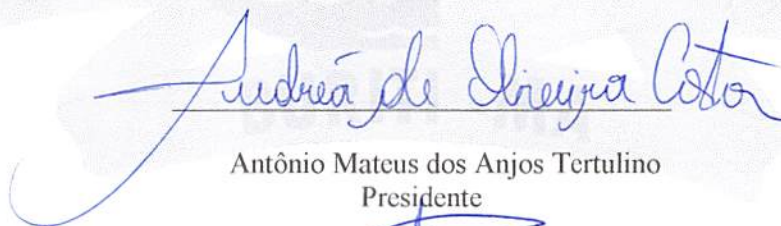 Andréa de Oliveira Costa
Antônio Mateus dos Anjos Tertulino
Presidente